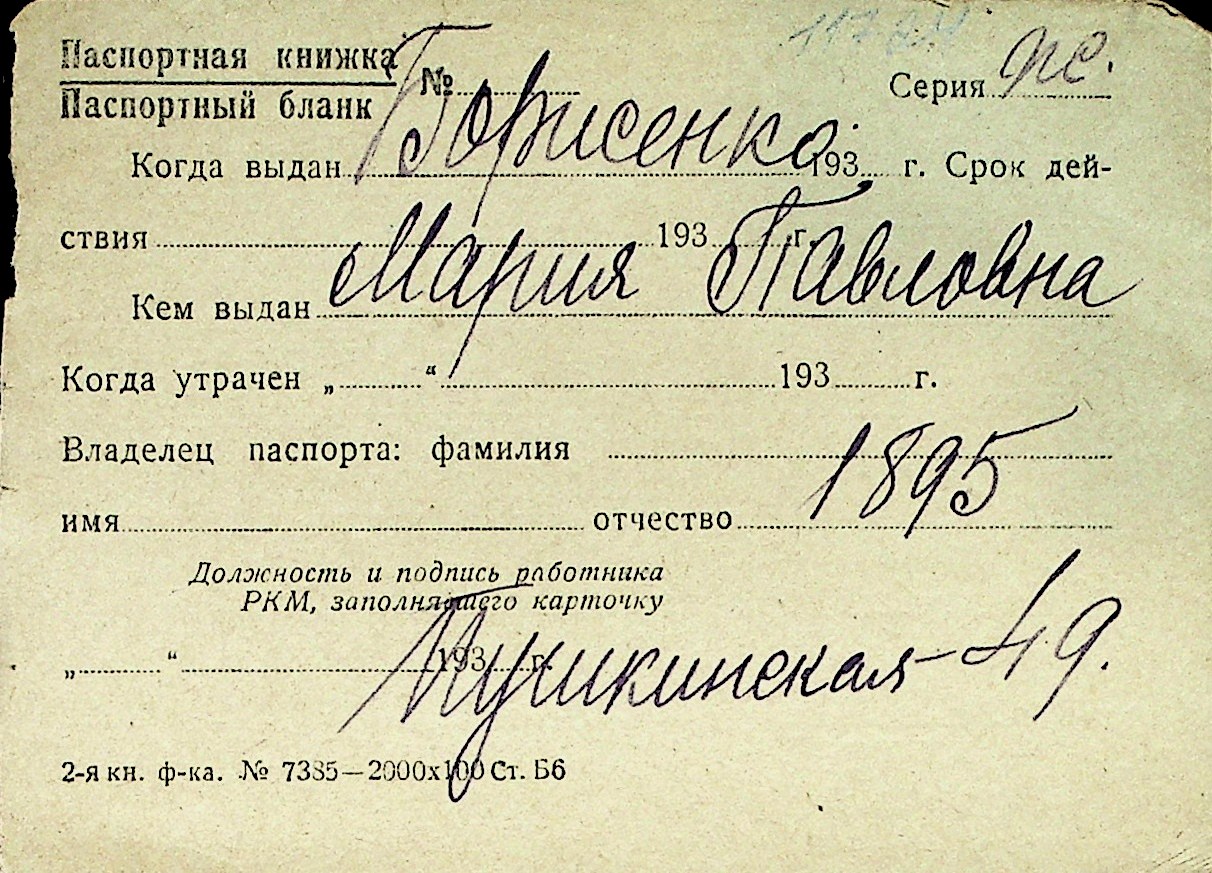 Паспортная книжка
Паспортный бланк № Серия
Борисенко
Когда выдан 193 г. Срок дей-
ствия 193 г.
Мария Павловна
Кем выдан
Когда утрачен „ “ 193 г.
Владелец паспорта: фамилия
1895
имя отчество
Должность и подпись работника
РКМ, заполнявшего карточку
„ “ 193 г.
Пушкинская - 49.
2-я кн. ф-ка. № 7385—2000х100 Ст. Б6